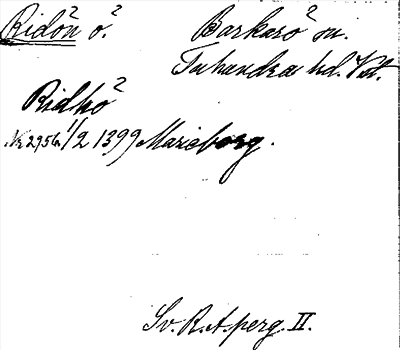 Ridön ö. Barkarö sn.
Tuhundra hd. Vstm.
Ridhö
Nr 2956 1/2 1399 Marieborg.
Sv. R. A. perg. II.